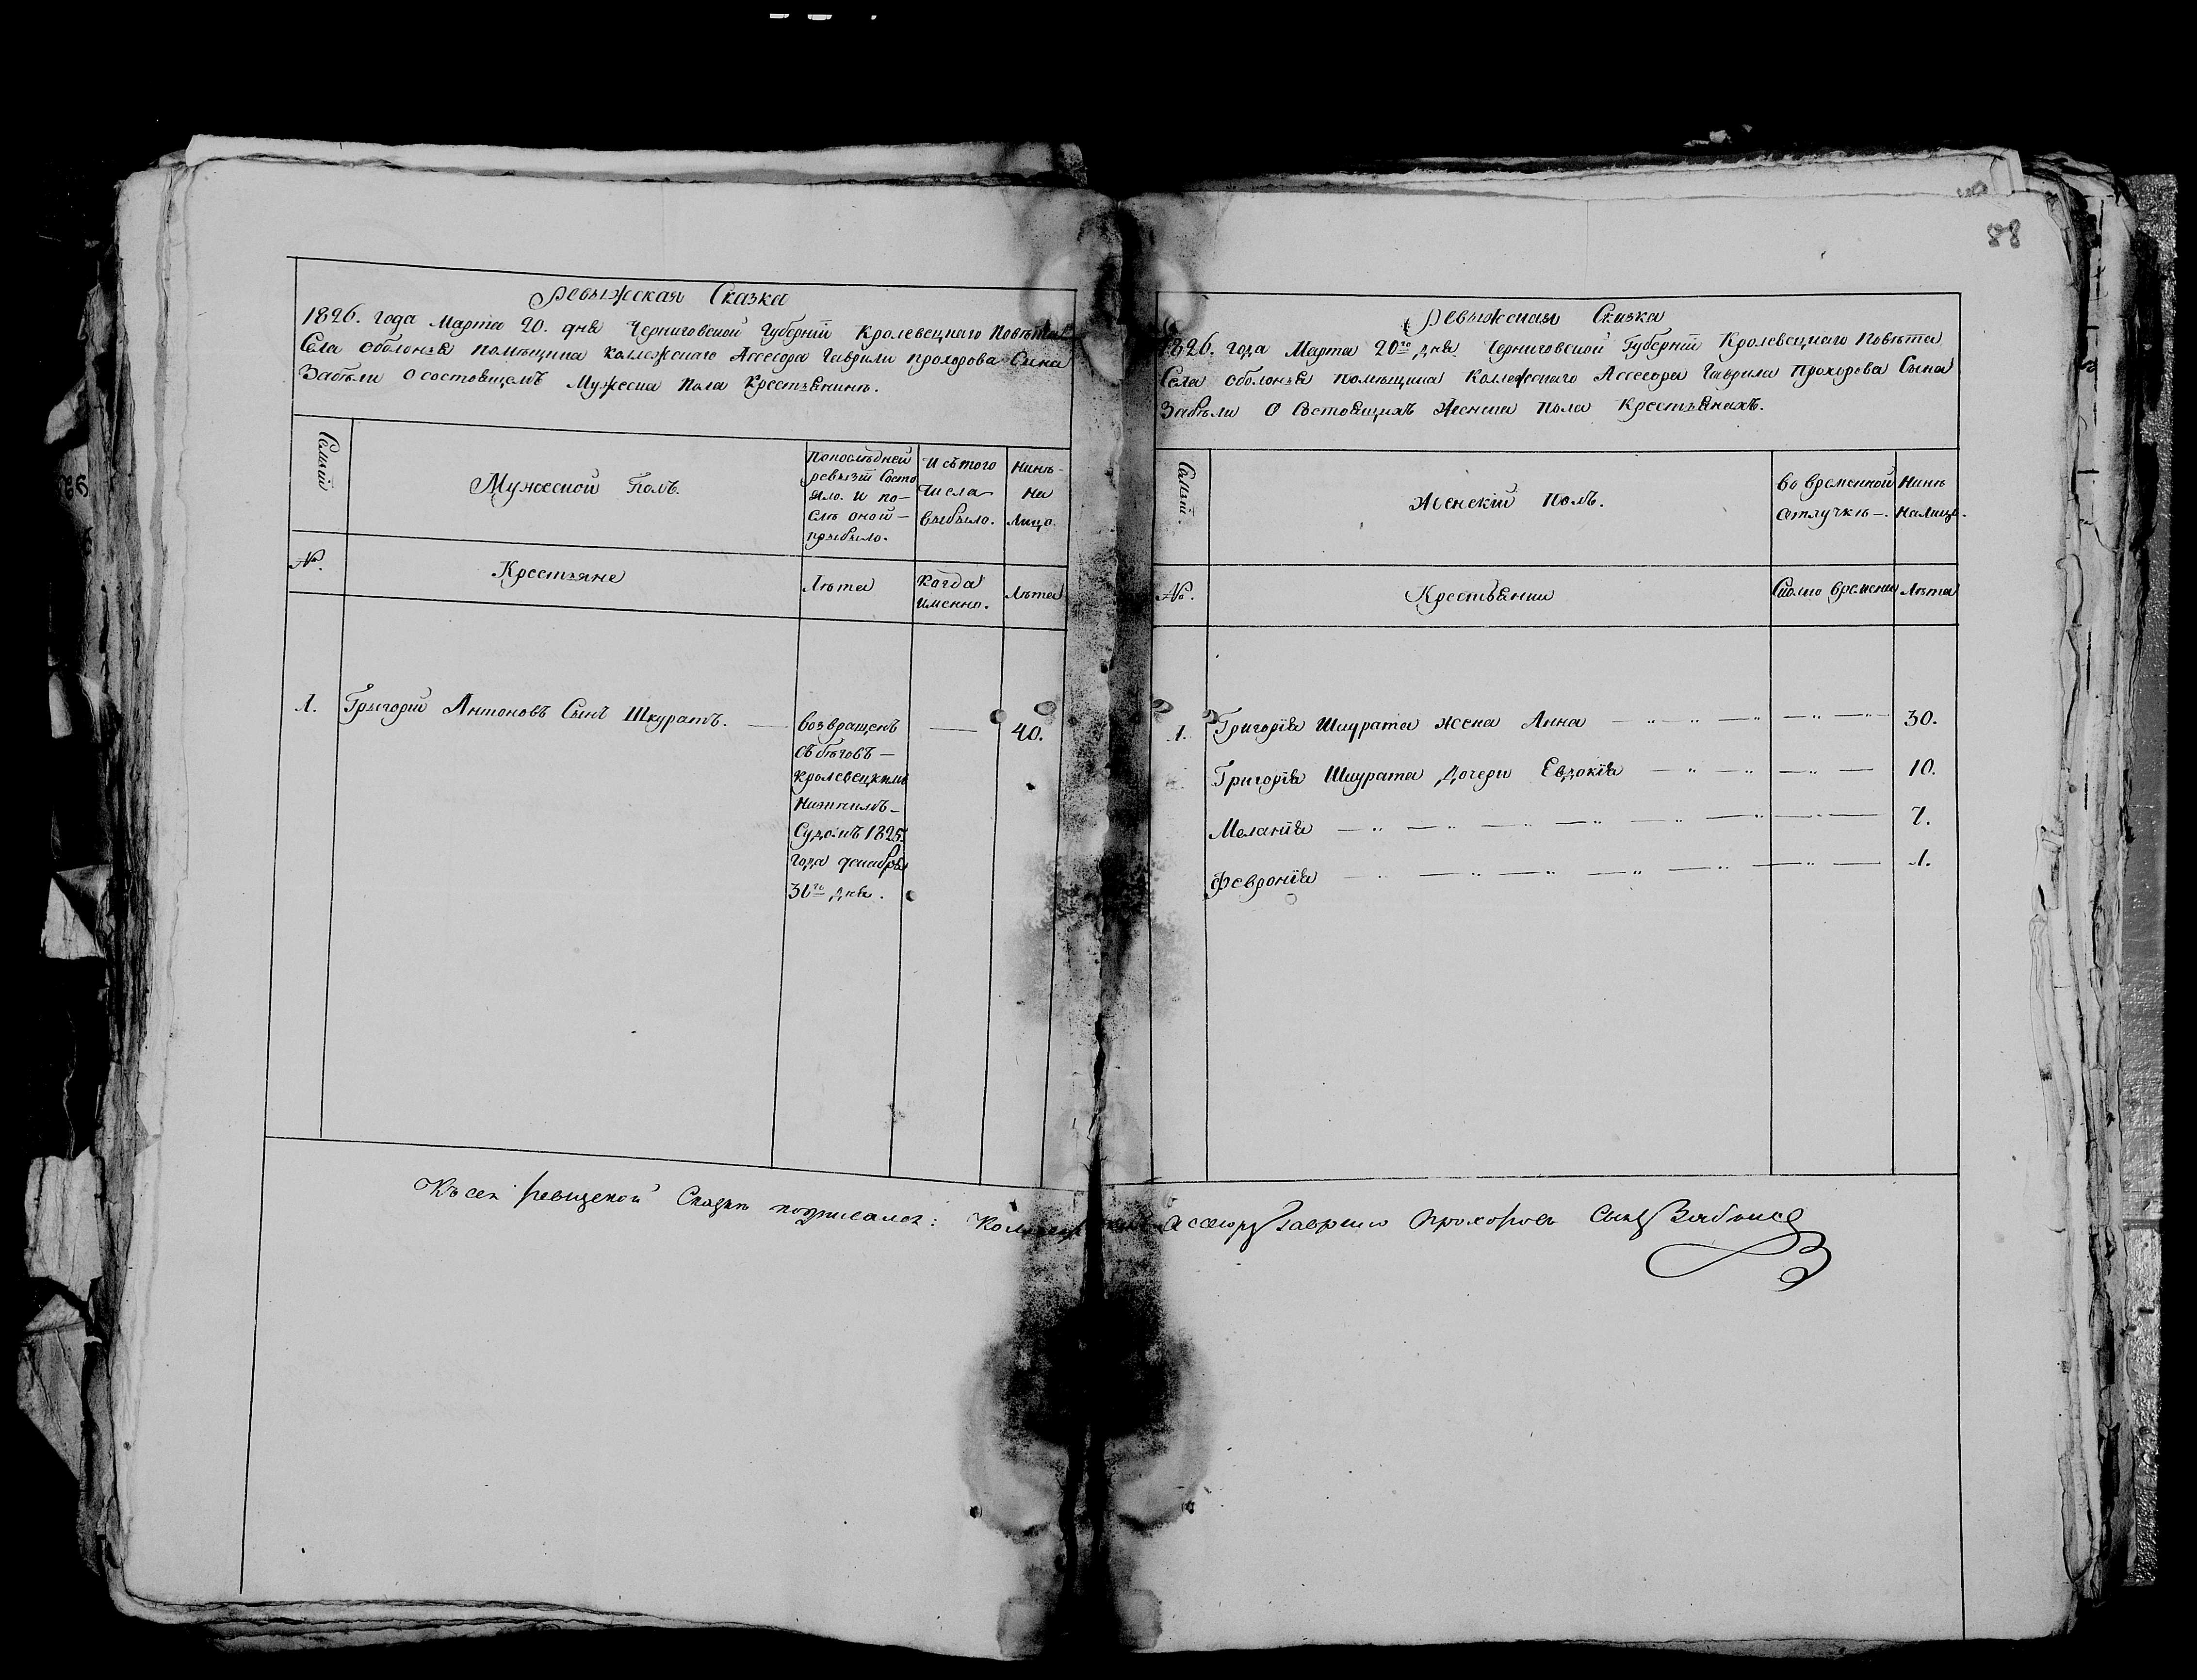 88
Ревыжская Сказка
1826. года Марта 20. дня Черниговской Губерніи Кролевецкаго Повѣта
Села Оболонья помѣщика Коллежскаго Ассесора Гаврили Прохорова Сина
Забѣли О состоящемъ Мужеска Пола Крестьянинѣ.
Семьи
Мужеской Полъ.
По послѣдней
ревызіи Состо
яло. и по-
слѣ оной-
прыбыло.
И съ того
Числа
выбыло.
Нинѣ-
На
Лицо.
№.
Крестьяне
Лѣта
Когда
Именно.
Лѣта
1. Грыгорій Антоновъ Сынъ Шкуратъ. —
возвращенъ
съ бѣговъ —
Кролевецкимъ
Нижнимъ-
Судомъ 1825.
года декабря
31го дня.
—
40.
Ревыжская Сказка
1826. года Марта 20го дня Черниговской Губерніи Кролевецкаго Повѣта
Села Оболонья помѣщика Коллежскаго Ассесора Гаврила Прохорова Сына
Забѣли О Состоящихъ Женска Пола Крестьянахъ.
Семьи.
Женскій Полъ.
Во временной
Отлучкѣ —.
Нинѣ
На лицо.
№.
Крестьянки
Сколко времени
Лѣта
1. Григорія Шкурата жена Анна — „ — „ — 30.
Григорія Шкурата Дочери Евдокія — „ — „ — 10.
Меланія — „ — „ — „ — 7.
Февронія — „ — „ — „ — 1.
Къ сей ревизской Сказки подписался: Коллежскій Ассесоръ Гаврило Прохоровъ Сынъ Забѣла